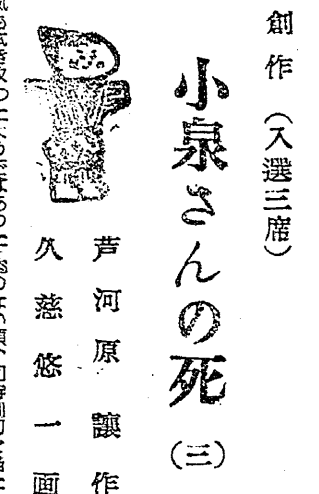 創作（入選三席）
小泉さんの死（三）
芦河原讓作
久慈悠一画